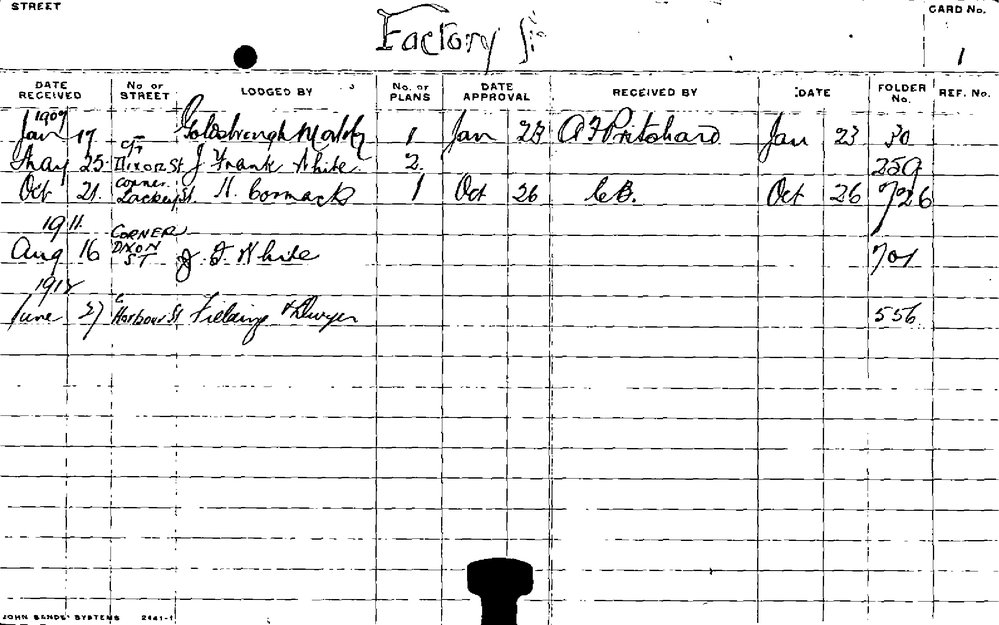 STREET Factory St CARD No. 1
DATE RECEIVED No OF STREET LODGED BY No. OF PLANS DATE APPROVAL RECEIVED BY DATE FOLDER No. REF. No.
1907
Jan 17 Goldsbrough Mort 1 Jan 23 A F Pritchard Jan 23 30
May 25 c/r Dixon St J Frank White 2 259
Oct 21 corner Lackey St. H. Cormack 1 Oct 26 C.B. Oct 26 726
1911
Aug 16 CORNER DIXON ST J. F. White 701
1912
June 27 c Harbour St Fielding & Dwyer 556
JOHN SANDS' SYSTEMS 2441-1